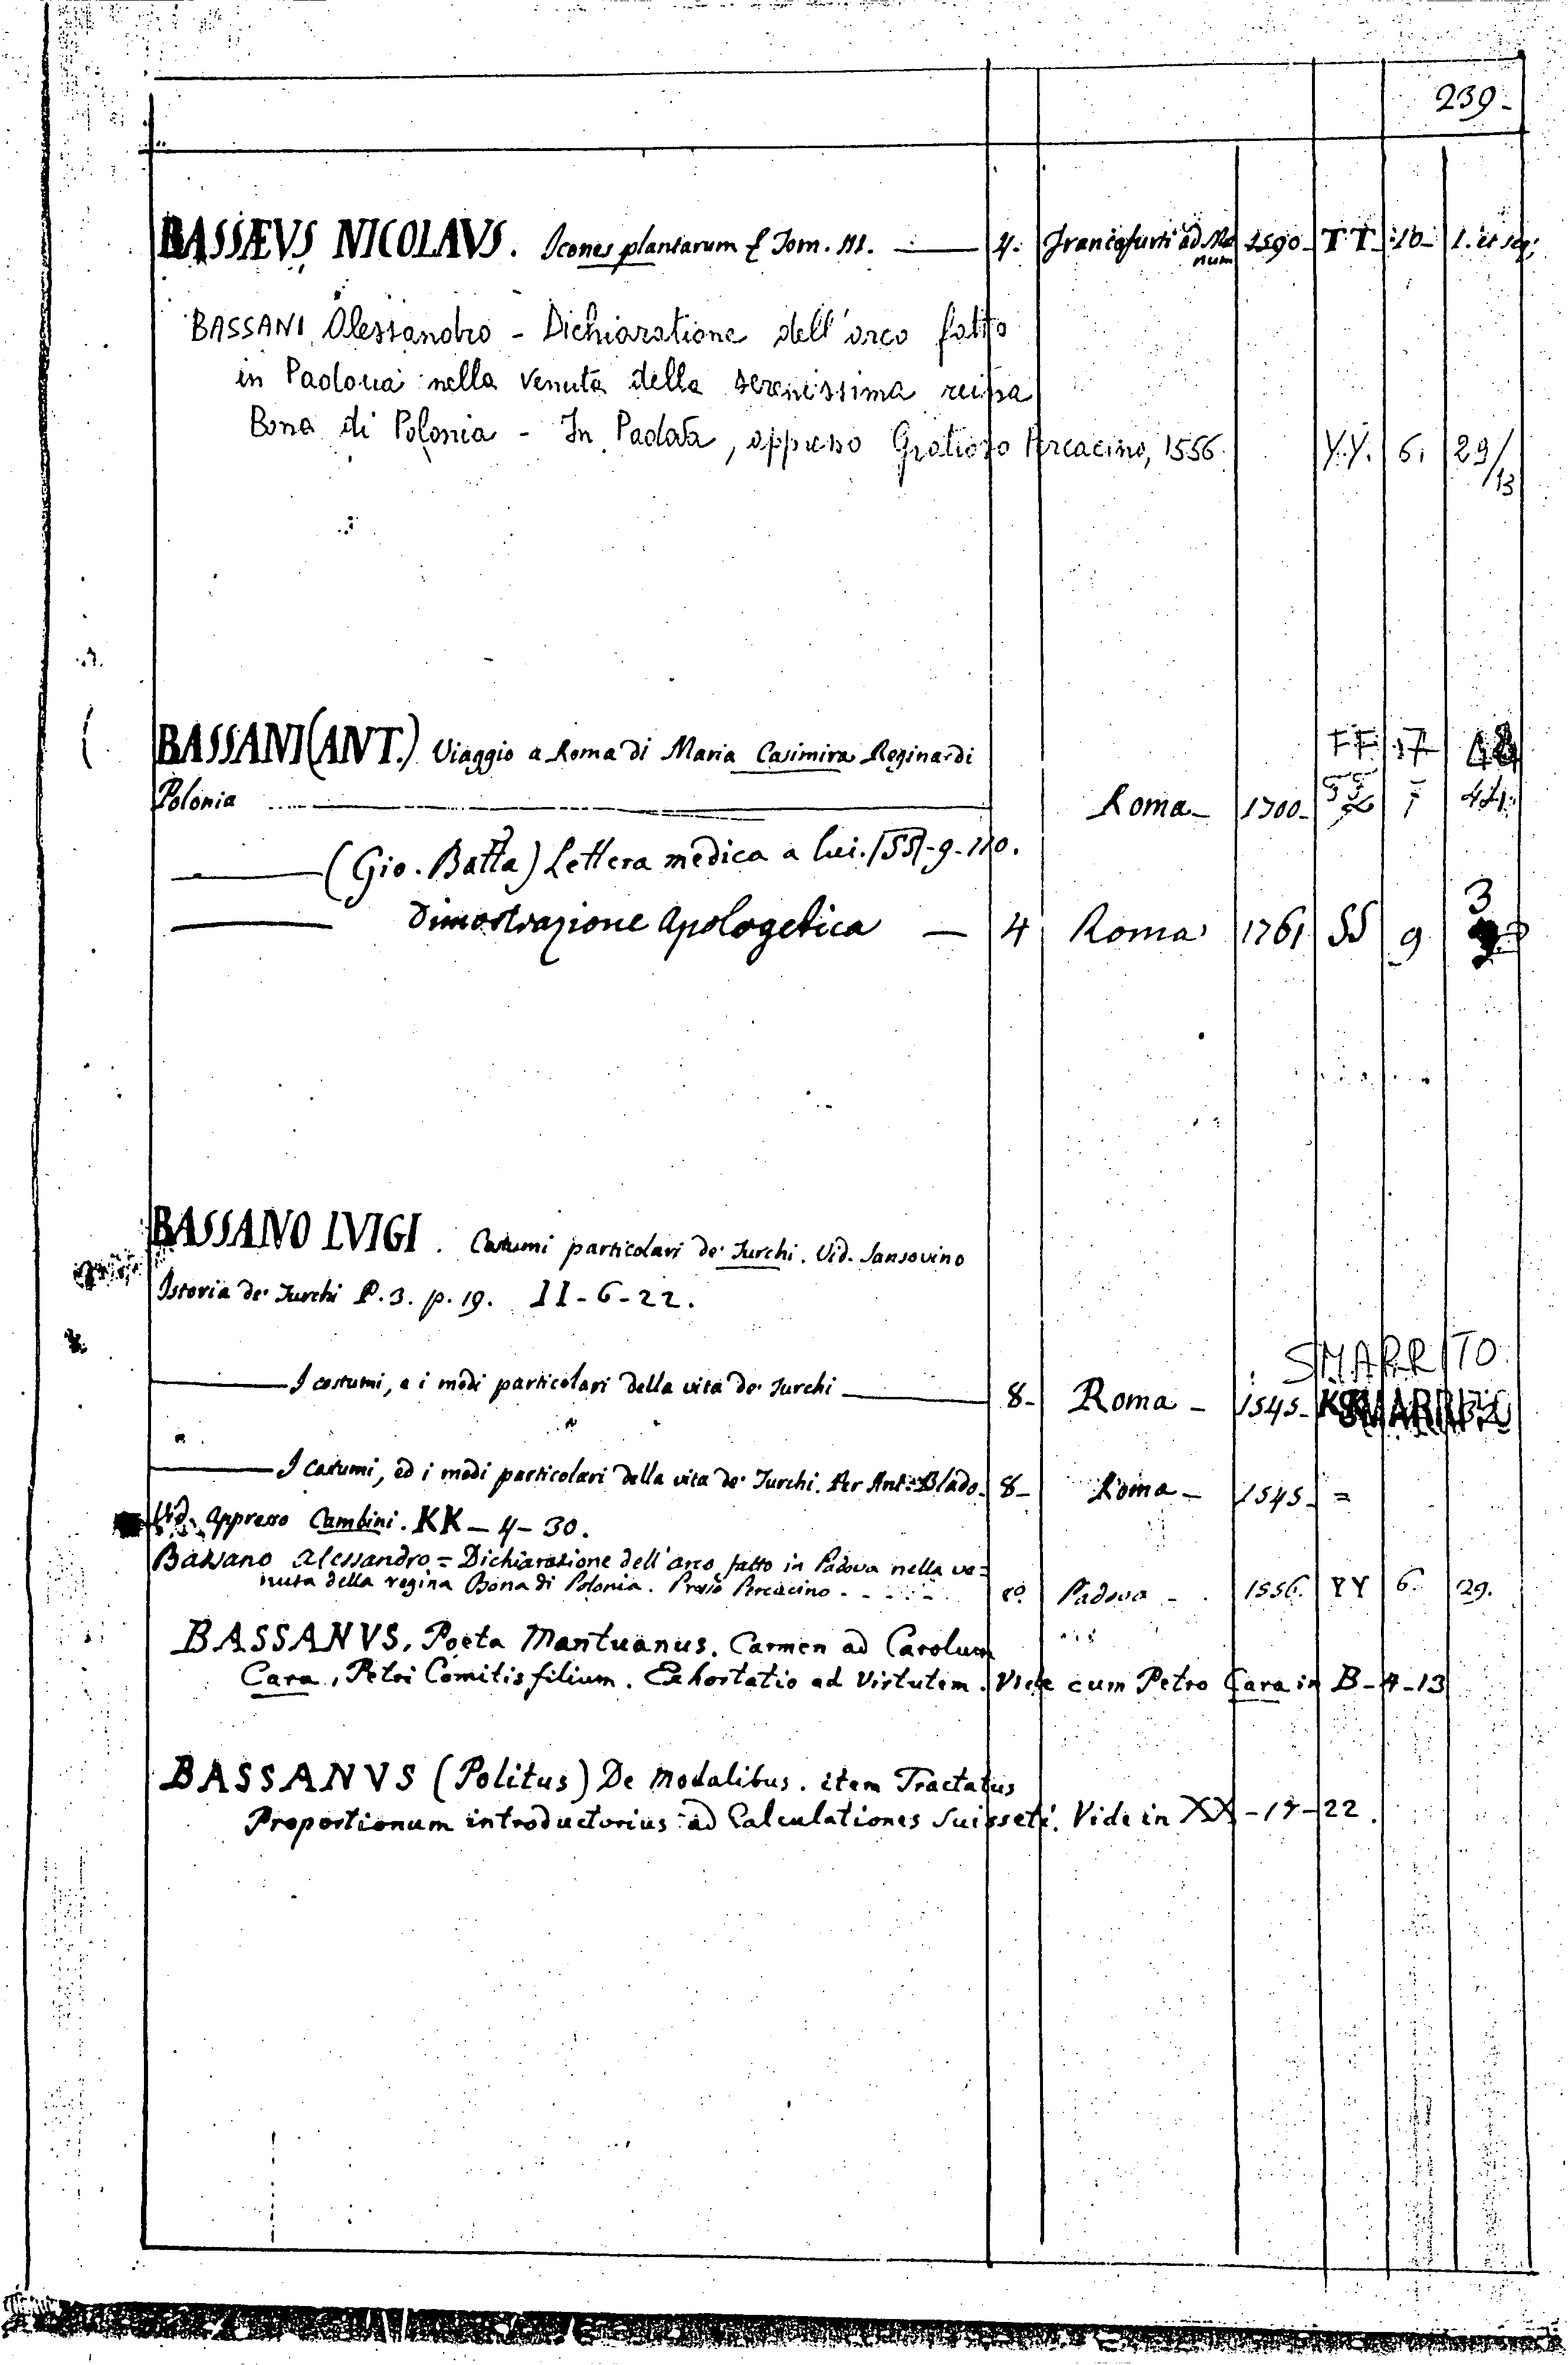 239.
BASSÆVS NICOLAVS. Icones plantarum Tom. III. — 4. Francofurti ad Mænum 1590. TT. 10. 1. et seq:
BASSANI Alessandro - Dichiaratione dell'arco fatto
in Padoua nella venuta della serenissima reina
Bona di Polonia - In Padova, appresso Gratioso Percacino, 1556. Y.Y. 6. 29/13
BASSANI (ANT.) Viaggio a Roma di Maria Casimira Regina di FF 17 48
Polonia — Roma — 1700
— (Gio. Batta) Lettera medica a lui. SS-9-110.
— Dimostrazione Apologetica — 4 Roma 1761 SS 9 3
BASSANO LVIGI. Costumi particolari de' Turchi. Vid. Sansovino
Istoria de' Turchi P. 3. p. 19. II-6-22.
SMARRITO
— I costumi, e i modi particolari della vita de' Turchi — 8 — Roma — 1545 — SMARRITO
— I costumi, ed i modi particolari della vita de' Turchi. Per Ant: Blado. 8 — Roma — 1545. =
Vid. appresso Cambini. KK-4-30.
Bassano Alessandro = Dichiarazione dell'arco fatto in Padova nella ve=
nuta della regina Bona di Polonia. Presso Percacino - - - 8° Padova - 1556. YY 6. 29.
BASSANVS, Poeta Mantuanus. Carmen ad Carolum
Cara, Petri Comitis filium. Exhortatio ad Virtutem. Vide cum Petro Cara in B-4-13
BASSANVS (Politus) De Modalibus. item Tractatus
Proportionum introductorius ad Calculationes Suisseti. Vide in XX-17-22.